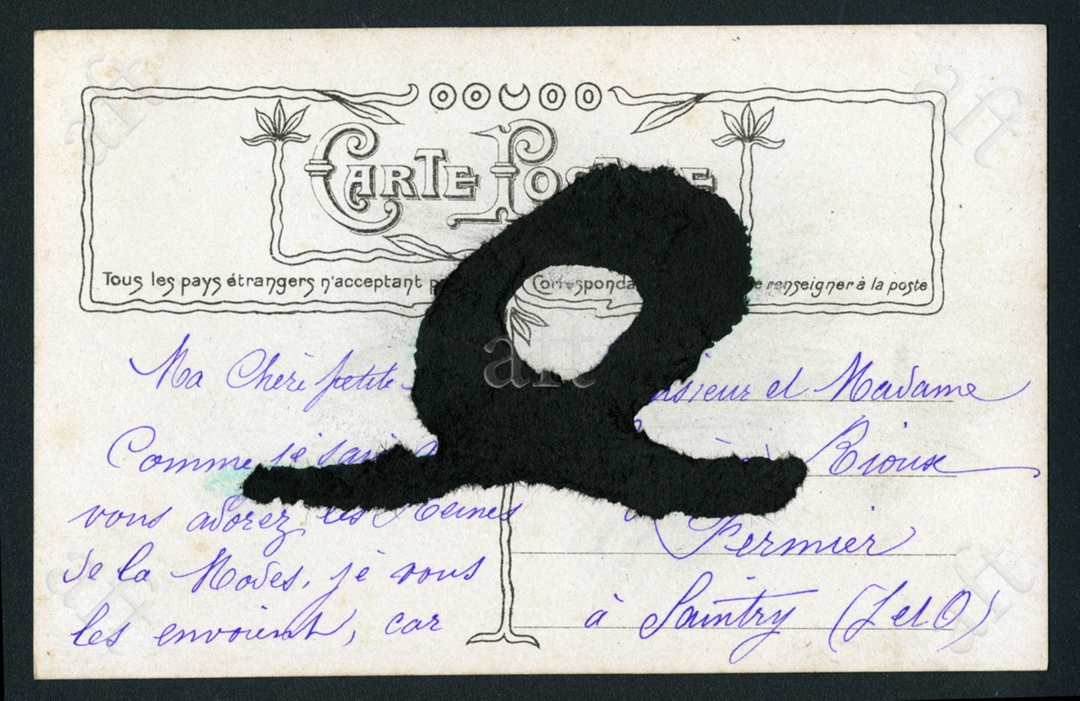 CARTE POSTALE
Tous les pays étrangers n'acceptant Correspondance renseigner à la poste
Ma Chèri petite
Comme je sais
vous adorez les Reines
de la Modes, je vous
les envoient, car
Monsieur et Madame
Rioux
Fermier
à Saintry (S et O)
art